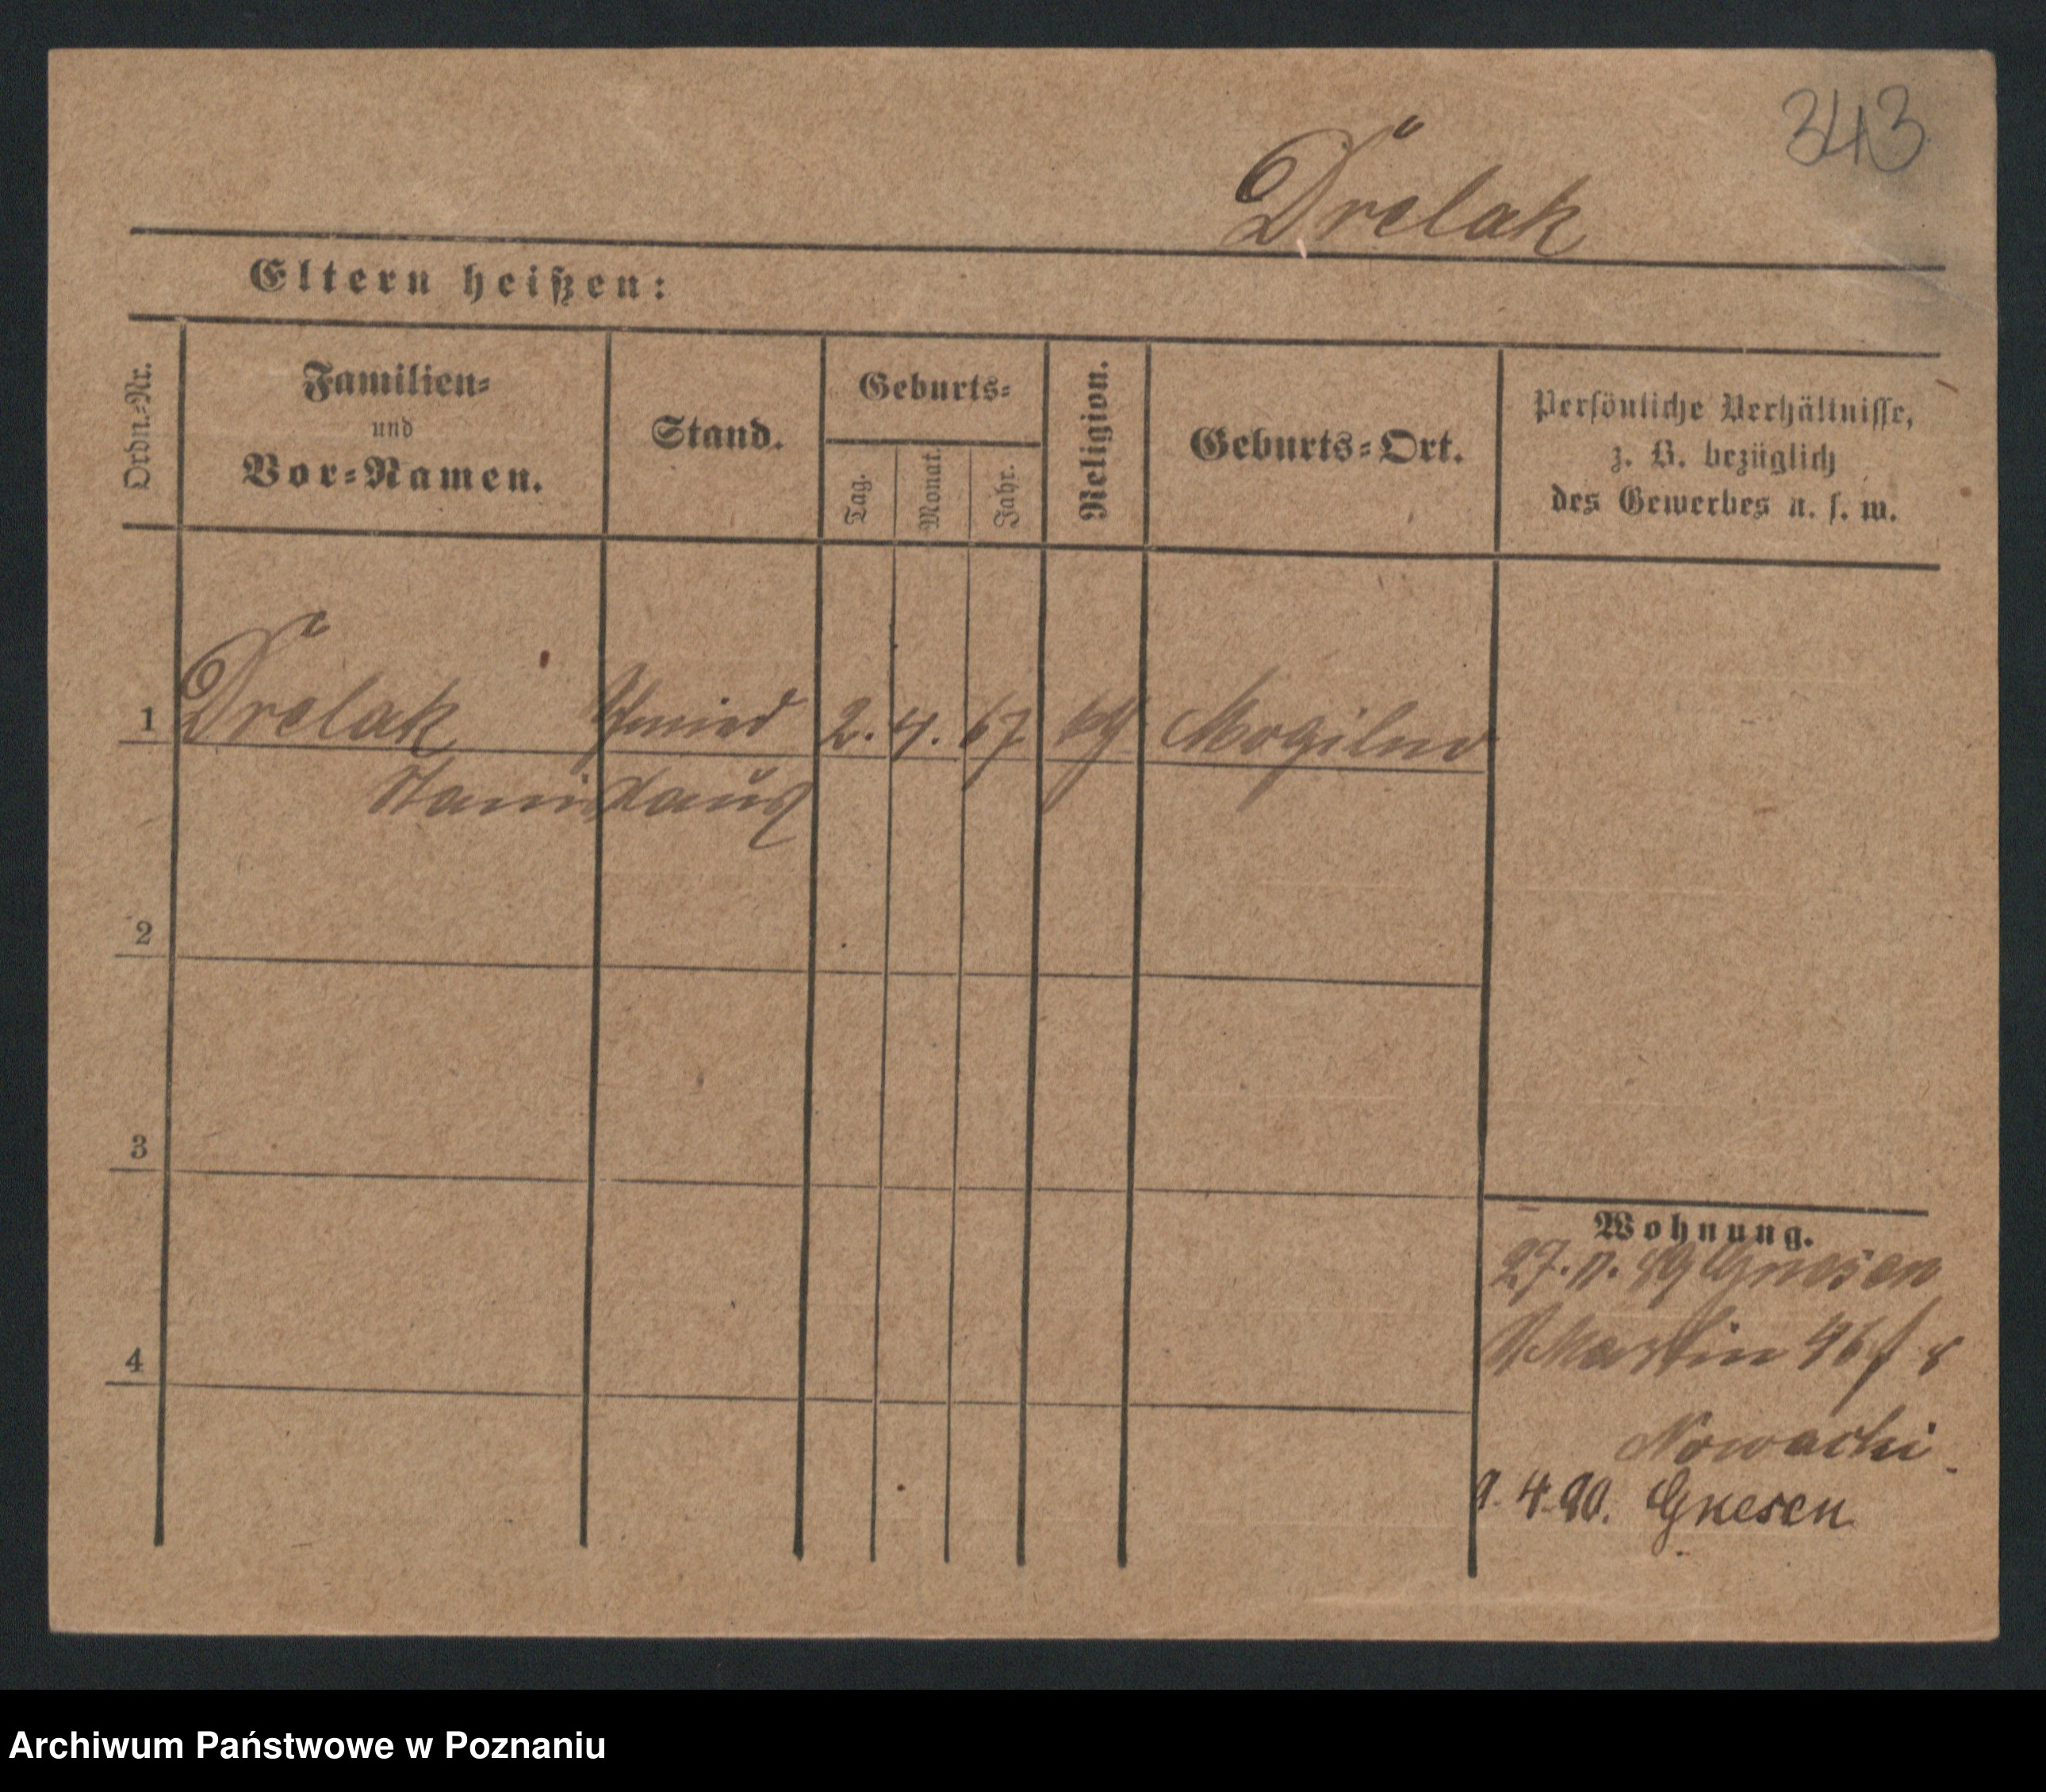 343
Drelak
Eltern heißen:
Ordn.-Nr.
Familien-
und
Vor-Namen.
Stand.
Geburts-
Tag.
Monat.
Jahr.
Religion.
Geburts-Ort.
Persönliche Verhältnisse,
z. B. bezüglich
des Gewerbes u. s. w.
1 Drelak Schmied 2. 4. 67 kg Mogilno
Stanislaus
2
3
4
Wohnung.
27. 11. 89 Gnesen
Martin 46
Nowacki
9. 4. 90. Gnesen
Archiwum Państwowe w Poznaniu